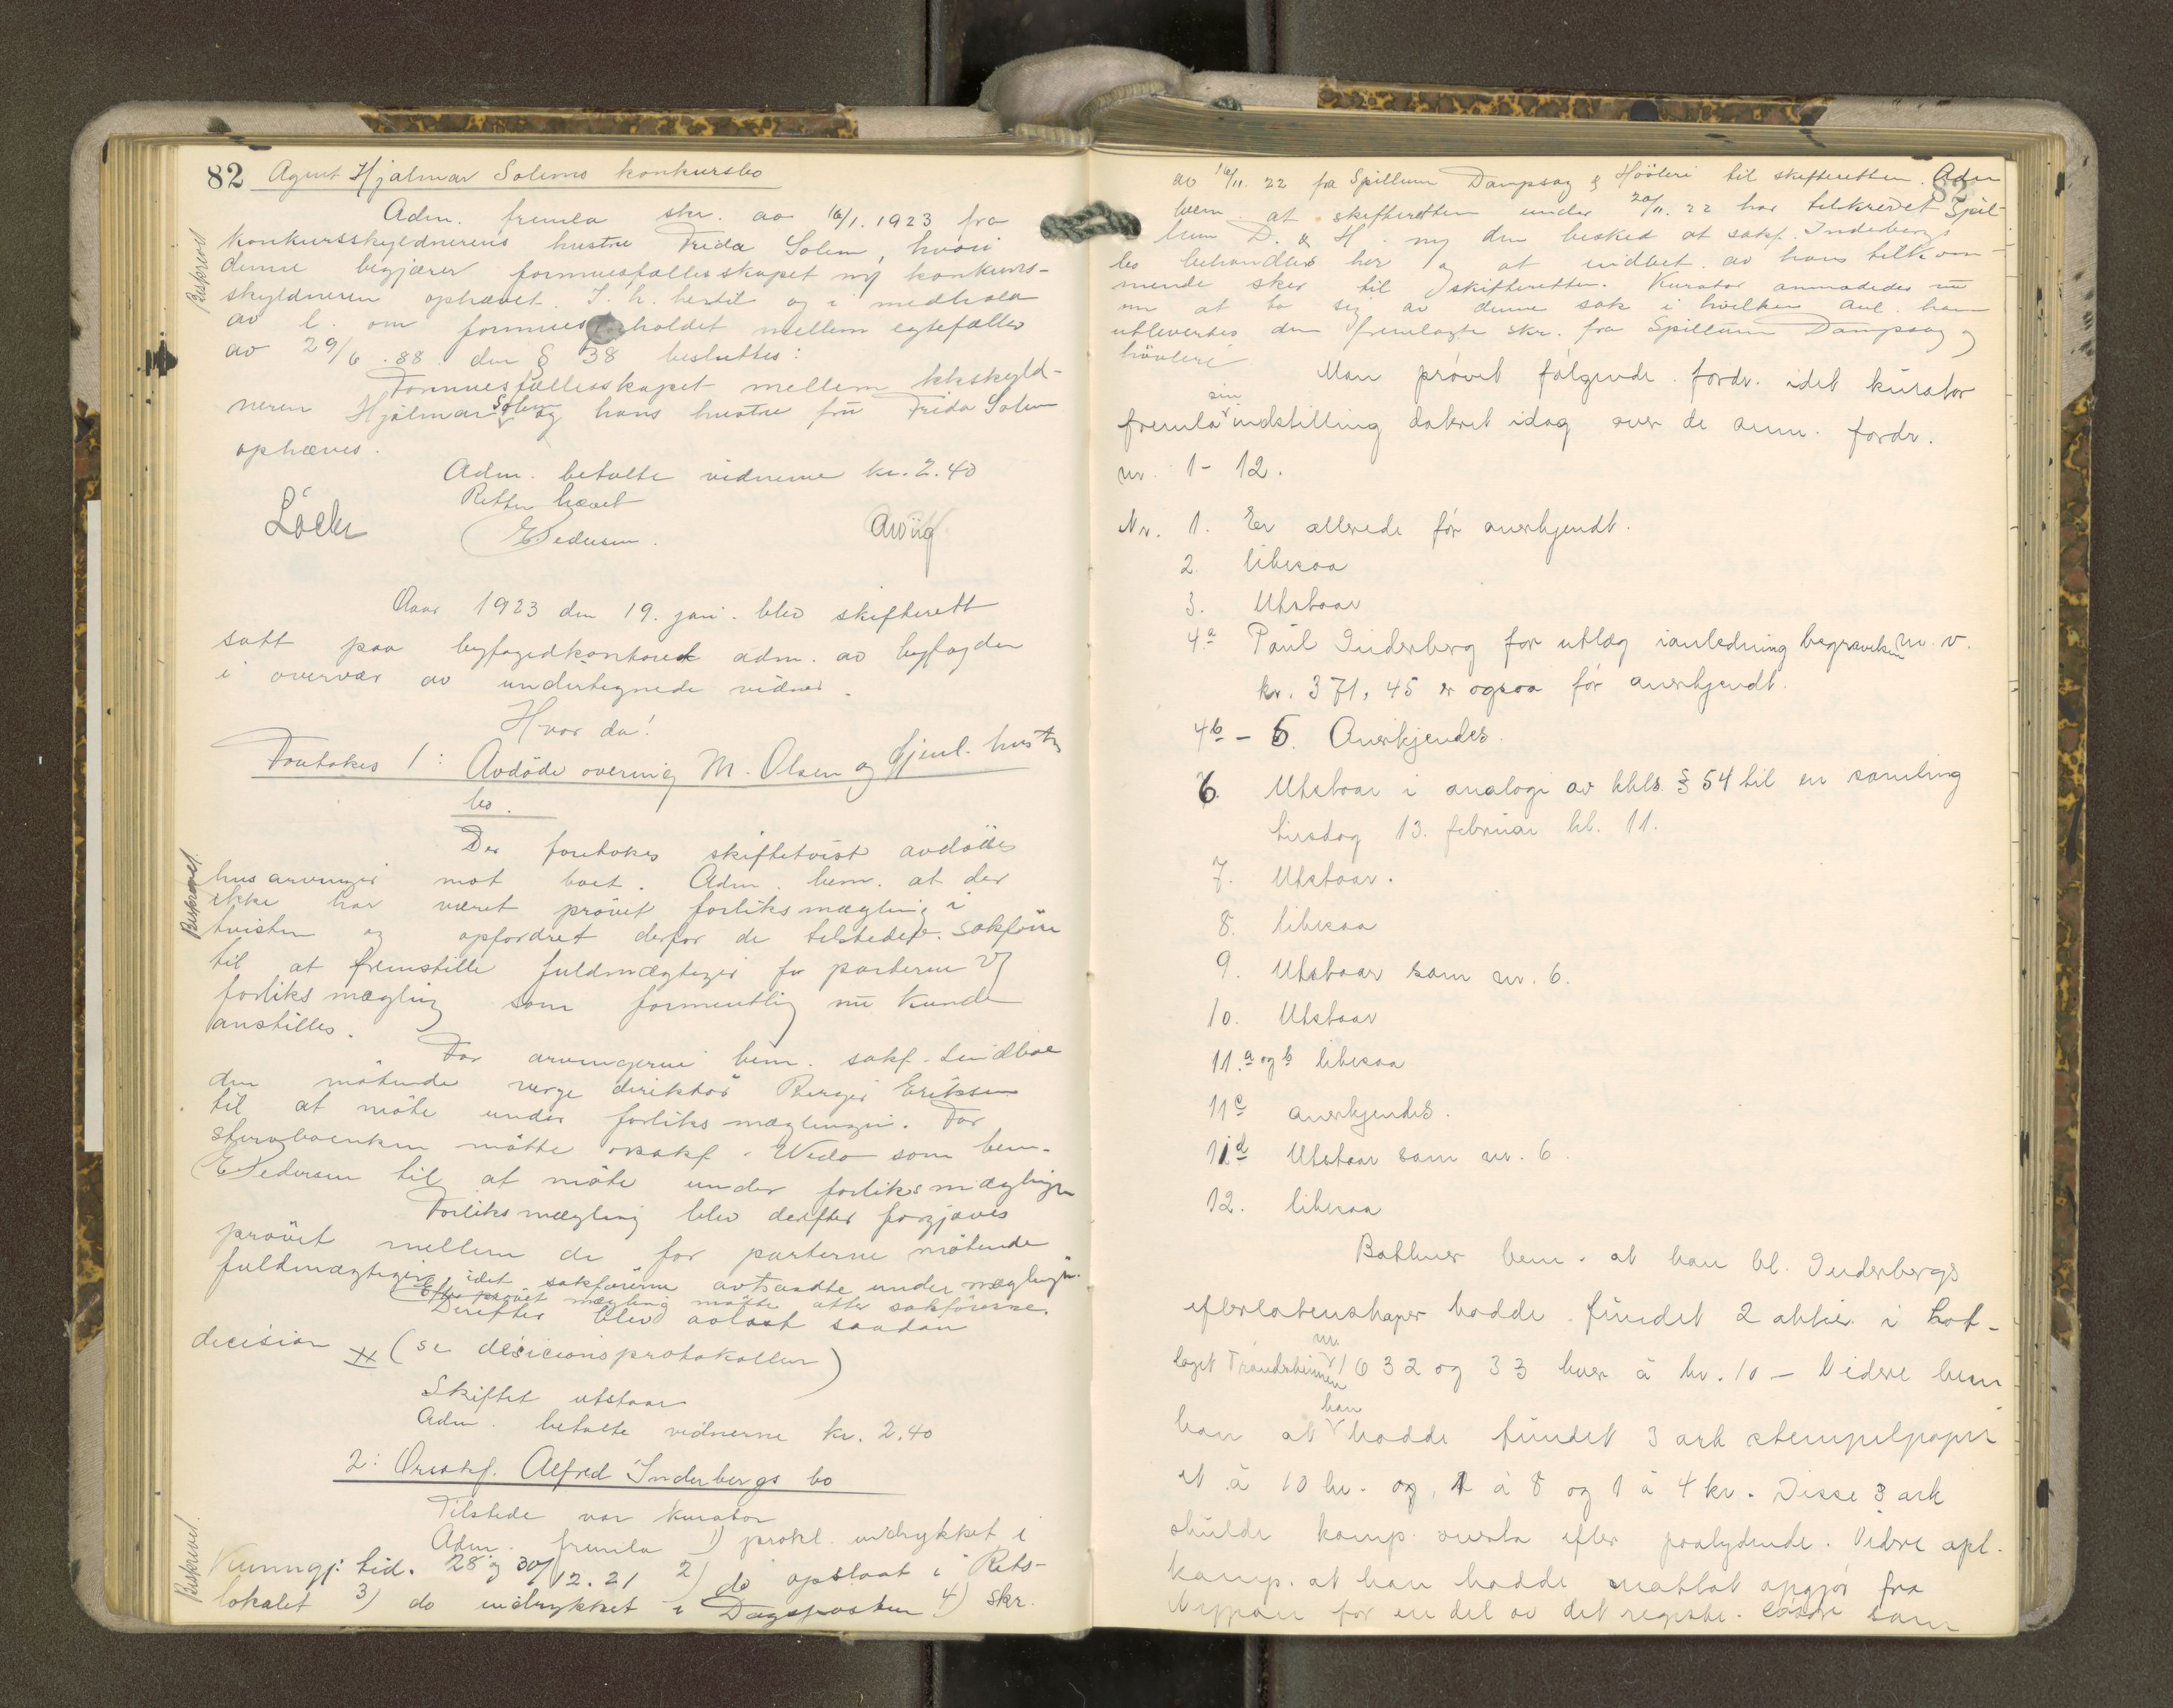 82 Agent Hjalmar Solems konkursbo
Adm. fremla skr. av 16/1. 1923 fra
konkursskyldnerens hustru Frida Solem, hvori
denne begjærer formuesfællesskapet m/ konkurs-
skyldneren ophævet. I h. hertil og i medhold
av l. om formuesforholdet mellem egtefæller
av 29/6. 88 den § 38 besluttes:
Formuesfællesskapet mellem kkskyld-
neren Hjalmar Solem og hans hustru fru Frida Solem
ophæves.
Adm. betalte vidnerne kr. 2.40
Retten hævet
EPedersen.
Beskrevet
Aar 1923 den 19. jan. blev skifterett
satt paa byfogedkontoret adm. av byfogden
i overvær av undertegnede vidner.
Hvor da!
Foretokes 1: Avdöde overing M. Olsen og gjenl. hustrus
bo.
Der foretokes skiftetvist avdödes
husarvinger mot boet. Adm. bem. at der
ikke har været prövet forliksmægling i
tvisten og opfordret derfor de tilstedev. sakförere
til at fremstille fuldmægtiger for parterne v/
forliksmægling som formentlig nu kunde
anstilles.
For arvingerne bem. sakf. Lindboe
den mötende verge direktör Birger Eriksen
til at möte under forliksmæglingen. For
stervboenken mötte orsakf. Wedo som bem.
EPedersen til at möte under forliksmæglingen
Forliksmægling blev derefter forgjæves
prövet mellem de for parterne mötende
fuldmægtiger, idet sakförerne avtraadte under mæglingen.
Efter prövet mægling mötte atter sakförerne.
Derefter blev avlast saadan
decision # (se decicionsprotokollen)
Skiftet utstaar
Adm. betalte vidnerne kr. 2.40
Beskrevet.
2: Orsakf. Alfred Inderbergs bo
Tilstede var kurator
Adm. fremla 1) prokl. indrykket i
Kunngj: tid. 28 og 30/12. 21 2) do opslaat i Rets-
lokalet 3) do indrykket i Dagsposten 4) skr.
Beskrevet.
av 16/11. 22 fra Spillum Dampsag & Hövleri til skifteretten. Adm
bem. at skifteretten under 20/11. 22 har tilskrevet Spil-
lum D. & H. m/ den besked at sakf. Inderbergs
bo behandles her og at indbet. av hans tilkom-
mende sker til skifteretten. Kurator anmodedes nu
om at ta sig av denne sak i hvilken anl. ham
utlevertes den fremlagte skr. fra Spillum Dampsag og
hövleri
Man prövet følgende fordr. idet kurator
fremla sin indstilling datert idag over de anm. fordr.
nr. 1 - 12.
Nr. 1. Er allerede för anerkjendt.
2. likesaa
3. Utstaar
4a Paul Inderberg for utlæg ianledning begravelsen m. v.
kr. 371,45 er ogsaa för anerkjendt.
4b - 5. Anerkjendes.
6. Utstaar i analogi av kkls. § 54 til en samling
tirsdag 13. februar kl. 11.
7. Utstaar.
8. likesaa
9. Utstaar som nr. 6.
10. Utstaar
11.a og b likesaa
11c anerkjendes.
11d Utstaar som nr. 6.
12. likesaa
bem. at han bl. Inderbergs
efterlatenskaper hadde fundet 2 aktier i Lot-
laget Trondhjemen nr. 1632 og 33 hver à kr. 10 – Videre bem
han at han hadde fundet 3 ark stempelpapir
et à 10 kr. og 1 à 8 og 1 à 4 kr. Disse 3 ark
skulde komp. overta efter paalydende. Videre opl.
komp. at han hadde mottat opgjör fra
for en del av det registr. lösöre som